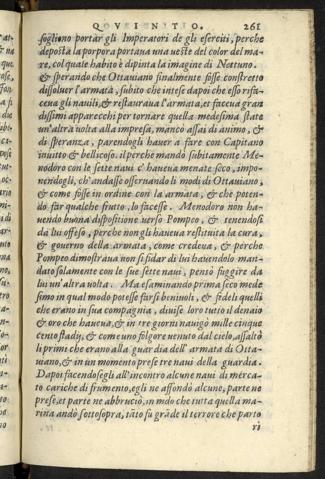 QVINTO. 261
sogliono portar gli Imperatori de gli eserciti, perche
deposta la porpora portaua una ueste del color del ma-
re, col quale habito è dipinta la imagine di Nettuno.
& sperando che Ottauiano finalmente fosse constretto
dissoluer l'armata, subito che intese dapoi che esso rifa-
ceua gli nauili, & restauraua l'armata, et faceua gran
dissimi apparecchi per tornare quella medesima state
un'altra uolta alla impresa, mancò assai di animo, &
di speranza, parendogli hauer a fare con Capitano
inuitto & bellicoso. il perche mandò subitamente Me-
nodoro con le sette naui c'haueua menate seco, impo-
nendogli, ch'andasse osseruando li modi di Ottauiano,
& come fosse in ordine con la armata, & che poten-
do far qualche frutto, lo facesse. Menodoro non ha-
uendo buona dispositione uerso Pompeo, & tenendosi
da lui offeso, perche non gli haueua restituita la cura,
& gouerno della armata, come credeua, & perche
Pompeo dimostraua non si fidar di lui hauendolo man-
dato solamente con le sue sette naui, pensò fuggire da
lui un'altra uolta. Ma esaminando prima seco mede
simo in qual modo potesse farsi beniuoli, & fideli quelli
che erano in sua compagnia, diuise loro tutto il denaio
& oro che haueua, & in tre giorni nauigò mille cinque
cento stadij, & come uno folgore uenuto dal cielo, assaltò
li primi che erano alla guardia dell'armata di Otta-
uiano, & in un momento prese tre naui della guardia.
Dapoi facendosegli all'incontro alcune naui di merca-
to cariche di frumento, egli ne affondò alcune, parte ne
prese, et parte ne abbruciò, in mdo che tutta quella ma-
rina andò sottosopra, tāto fu grāde il terrore che parto
rì